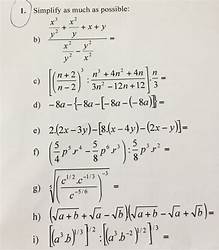 1. Simplify as much as possible:
b) \frac{\frac{x^3}{y^2}+\frac{x^2}{y}+x+y}{\frac{x^2}{y^2}-\frac{y^2}{x^2}}=
c) \left[\left(\frac{n+2}{n-2}\right)^3:\frac{n^3+4n^2+4n}{3n^2-12n+12}\right].\frac{n}{3}=
d) -8a-{-8a-[-8a-(-8a)]}=
e) 2.(2x-3y)-[8.(x-4y)-(2x-y)]=
f) \left(\frac{5}{4}p^5.r^4-\frac{5}{8}p^6.r^3\right):\frac{5}{8}p^3.r^2=
g) \sqrt[5]{\left(\frac{c^{1/2}.c^{-1/3}}{c^{-5/6}}\right)^{-3}}=
h) (\sqrt{a+b}+\sqrt{a-\sqrt{b}})(\sqrt{a+b}-\sqrt{a}+\sqrt{b})=
i) [(a^3.b)^{1/3}]^{1/2}:[(a^3.b^{-2})^{1/2}]^{1/3}=